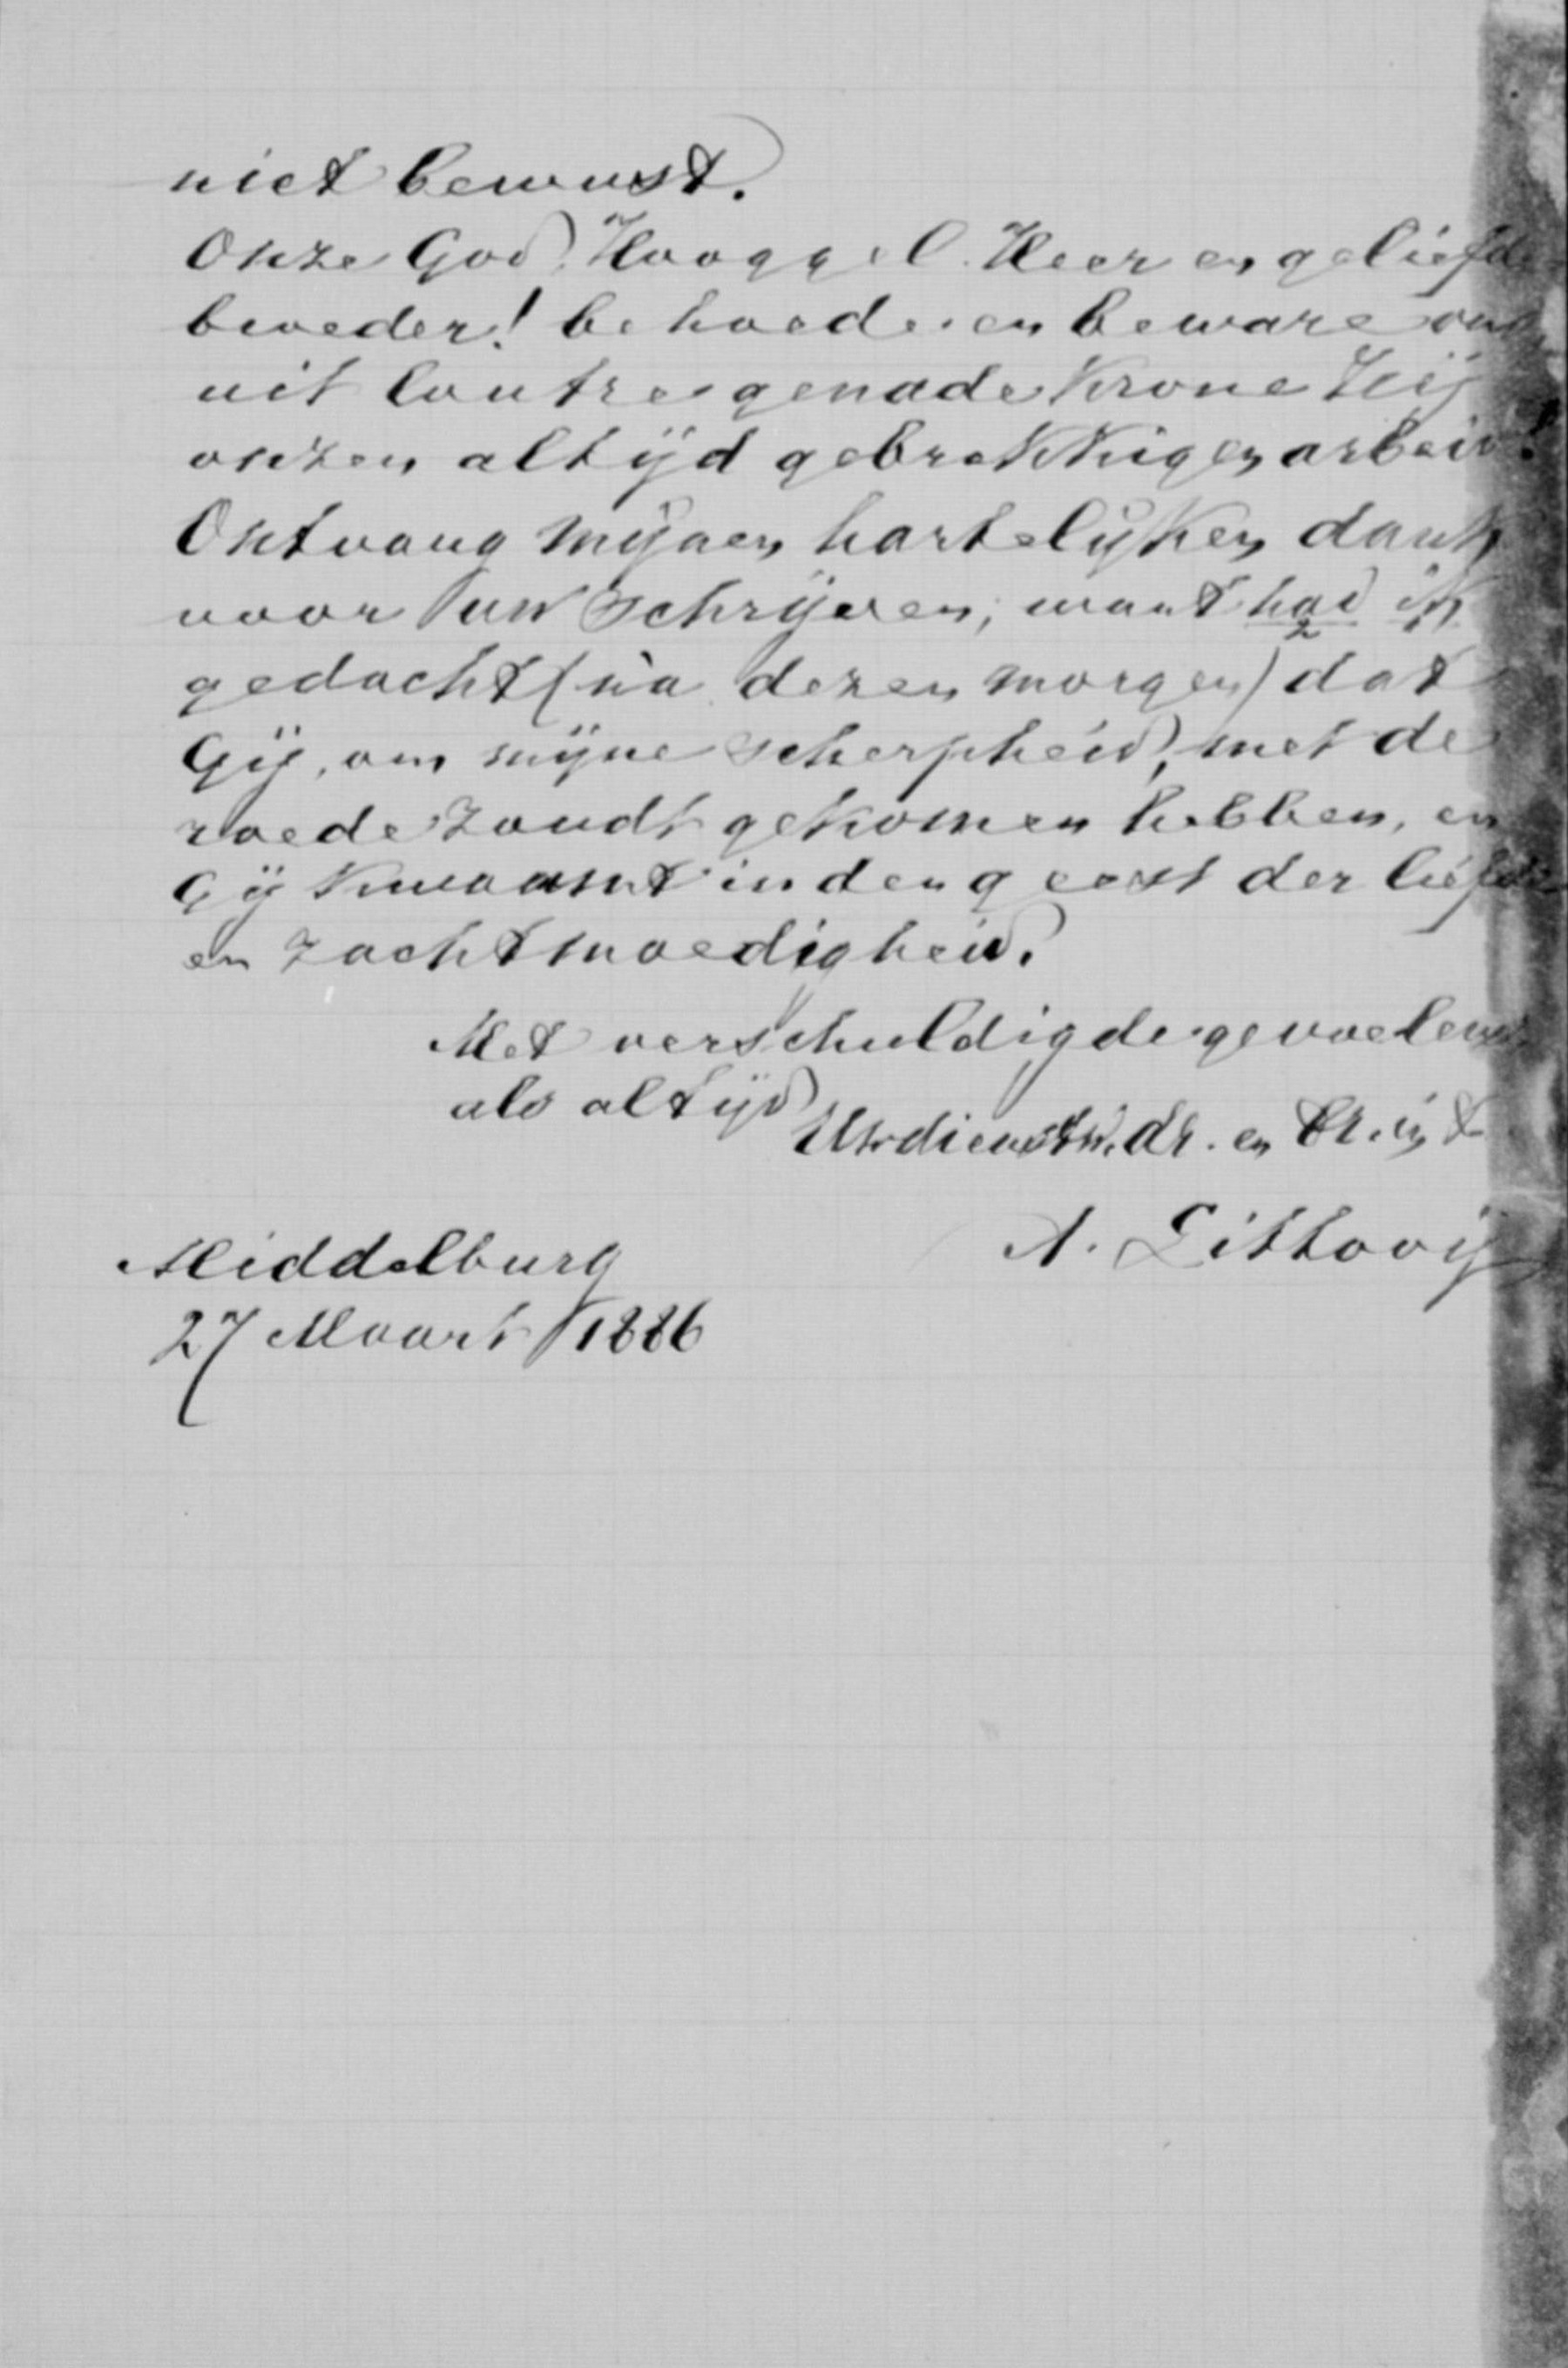 niet bewust.
Onze God, Hooggel. Heer en geliefde
broeder! behoede en beware ons
uit loutre genade Krone Hij
onzen altijd gebrekkigen arbeid!
Ontvang mijnen hartelijken dank
voor uw schrijven; want had ik
2
gedacht (na dezen morgen) dat
Gij, om mijne scherpheid, met de
roede zoudt gekomen hebben, en
Gij kwaamt in den geest der liefde
en zachtmoedigheid.
Met verschuldigde gevoelens
als altijd
Uw dienstw. dr. en br. in
A. Littooij
Middelburg
27 Maart 1886